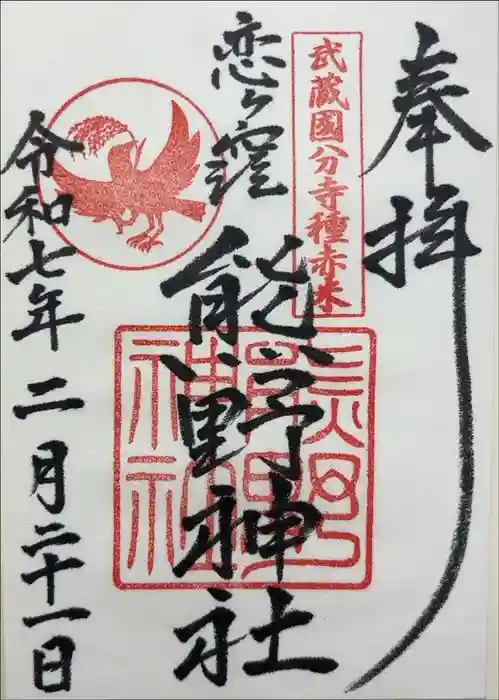 奉拝
武蔵国分寺種赤米
恋ヶ窪
熊野神社
熊野神社
令和七年二月二十一日